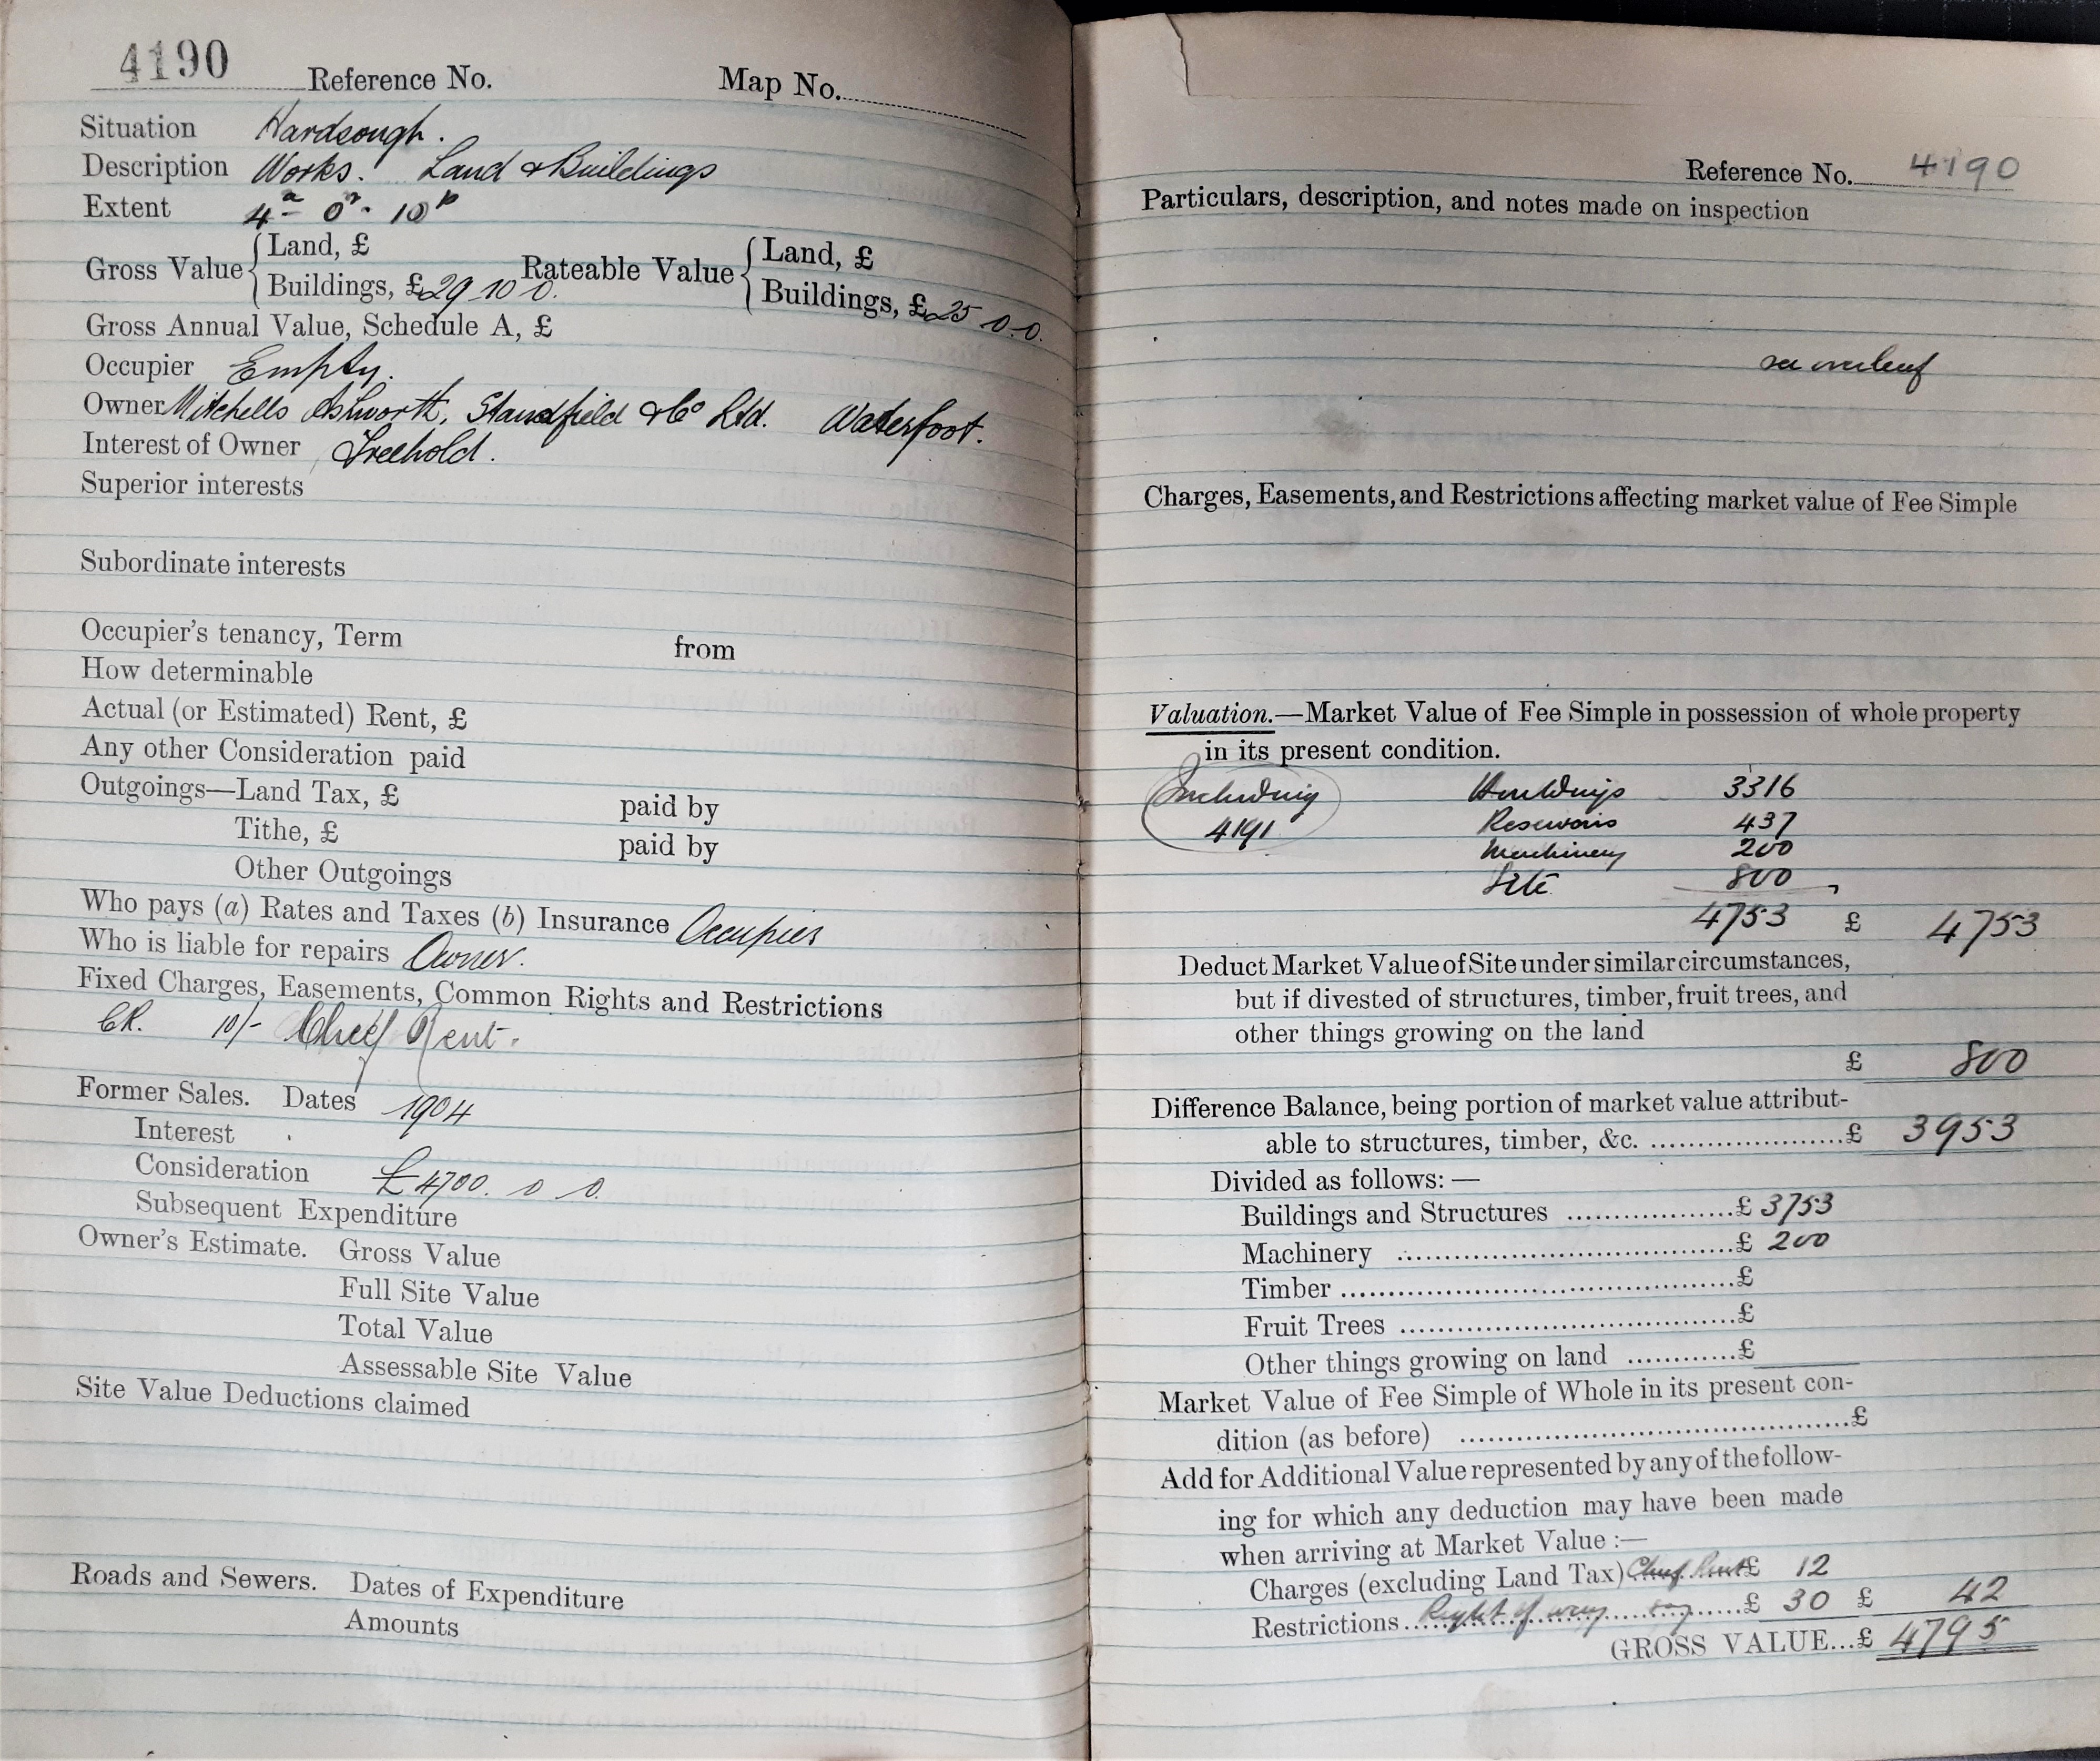 4190 Reference No. Map No.
Situation Hardsough.
Description Works. Land & Buildings
Extent 4a 0r. 10p
Gross Value { Land, £ Rateable Value { Land, £
Buildings, £29 10 0. Buildings, £25 0.0.
Gross Annual Value, Schedule A, £
Occupier Empty.
Owner Mitchells Ashworth, Standfield & Co Ltd. Waterfoot.
Interest of Owner Freehold.
Superior interests
Subordinate interests
Occupier's tenancy, Term from
How determinable
Actual (or Estimated) Rent, £
Any other Consideration paid
Outgoings—Land Tax, £ paid by
Tithe, £ paid by
Other Outgoings
Who pays (a) Rates and Taxes (b) Insurance Occupier
Who is liable for repairs Owner.
Fixed Charges, Easements, Common Rights and Restrictions
CR. 10/- Chief Rent.
Former Sales. Dates 1904
Interest
Consideration £4700. 0 0.
Subsequent Expenditure
Owner's Estimate. Gross Value
Full Site Value
Total Value
Assessable Site Value
Site Value Deductions claimed
Roads and Sewers. Dates of Expenditure
Amounts
Reference No. 4190
Particulars, description, and notes made on inspection
see overleaf
Charges, Easements, and Restrictions affecting market value of Fee Simple
Valuation.—Market Value of Fee Simple in possession of whole property
in its present condition.
Including Buildings 3316
4191 Reservoirs 437
Machinery 200
Site 800
4753 £ 4753
Deduct Market Value of Site under similar circumstances,
but if divested of structures, timber, fruit trees, and
other things growing on the land
£ 800
Difference Balance, being portion of market value attribut-
able to structures, timber, &c. £ 3953
Divided as follows:—
Buildings and Structures £ 3753
Machinery £ 200
Timber £
Fruit Trees £
Other things growing on land £
Market Value of Fee Simple of Whole in its present con-
dition (as before) £
Add for Additional Value represented by any of the follow-
ing for which any deduction may have been made
when arriving at Market Value :—
Charges (excluding Land Tax) Chief Rent £ 12
Restrictions Right of way £ 30 £ 42
GROSS VALUE...£ 4795